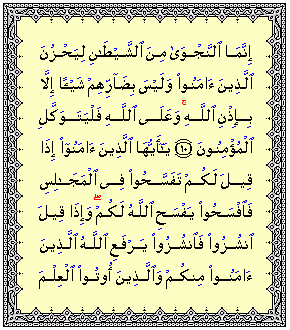 إِنَّمَا ٱلنَّجْوَىٰ مِنَ ٱلشَّيْطَـٰنِ لِيَحْزُنَ
ٱلَّذِينَ ءَامَنُوا۟ وَلَيْسَ بِضَآرِّهِمْ شَيْـًٔا إِلَّا
بِإِذْنِ ٱللَّهِ ۚ وَعَلَى ٱللَّهِ فَلْيَتَوَكَّلِ
ٱلْمُؤْمِنُونَ ١٠ يَـٰٓأَيُّهَا ٱلَّذِينَ ءَامَنُوٓا۟ إِذَا
قِيلَ لَكُمْ تَفَسَّحُوا۟ فِى ٱلْمَجَـٰلِسِ
فَٱفْسَحُوا۟ يَفْسَحِ ٱللَّهُ لَكُمْ ۖ وَإِذَا قِيلَ
ٱنشُزُوا۟ فَٱنشُزُوا۟ يَرْفَعِ ٱللَّهُ ٱلَّذِينَ
ءَامَنُوا۟ مِنكُمْ وَٱلَّذِينَ أُوتُوا۟ ٱلْعِلْمَ